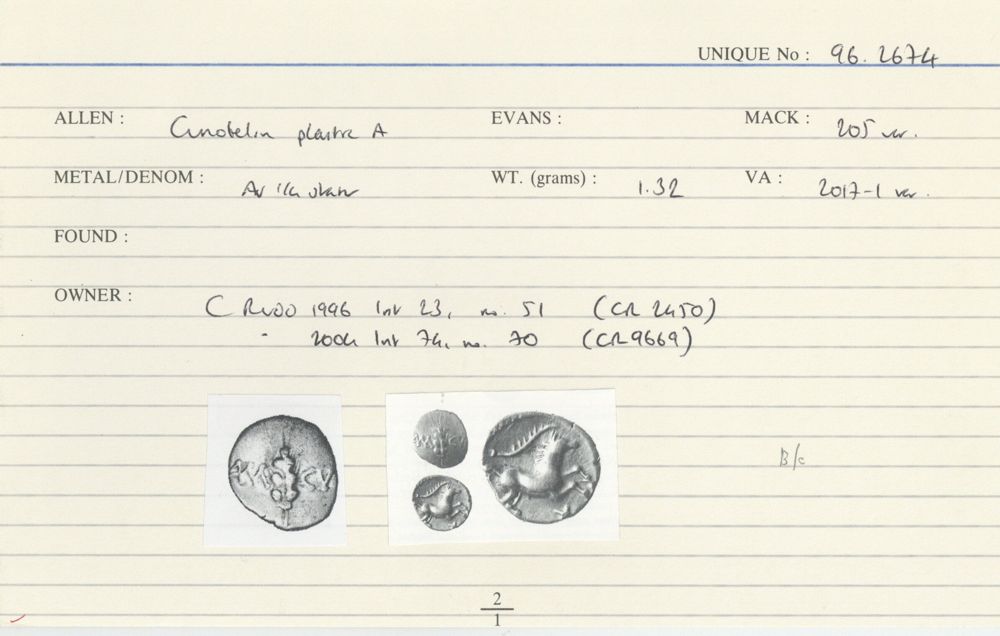 UNIQUE No : 96.2674
ALLEN : Cunobelin plastic A EVANS : MACK : 205 var.
METAL/DENOM : AV 1/4 stater WT. (grams) : 1.32 VA : 2017-1 var.
FOUND :
OWNER : C RUDD 1996 list 23, no. 51 (CR 2450)
" 2004 list 74, no. 70 (CR 9669)
B/c
2
1